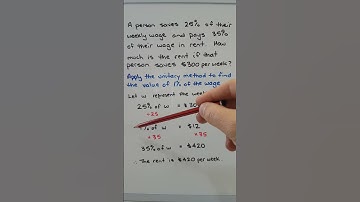 A person saves 25% of their
weekly wage and pays 35%
of their wage in rent. How
much is the rent if that
person saves $300 per week?
Apply the unitary method to find
the value of 1% of the wage
Let w represent the
25% of w = $
÷25
% of w = $12
×35 ×35
35% of w = $420
∴ The rent is $420 per week.